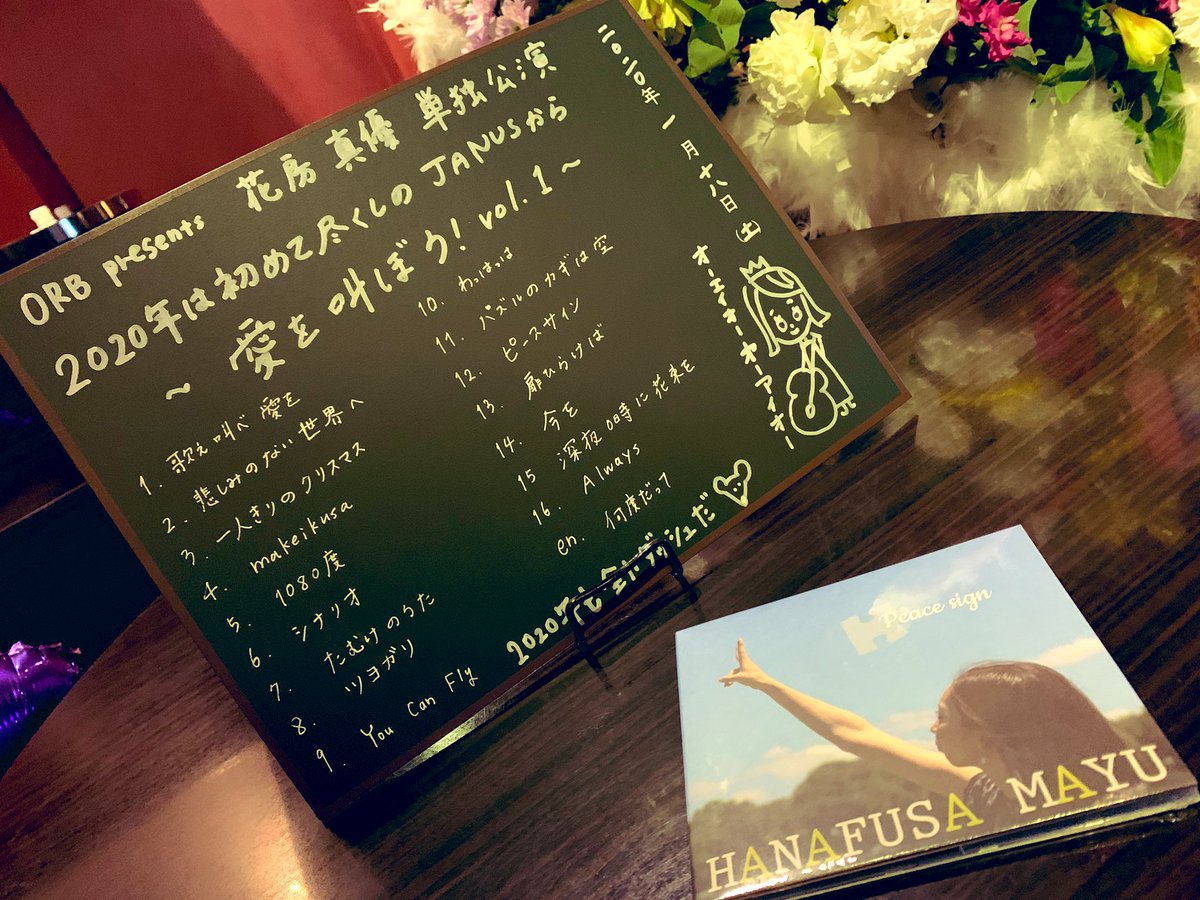 ORB presents 花房真優 単独公演
2020年は初めて尽くしのJANUSから
~ 愛を叫ぼう! vol.1 ~
1. 歌え叫べ愛を
2. 悲しみのない世界へ
3. 一人きりのクリスマス
4. makeikusa
5. 1080度
6. シナリオ
7. たむけのうた
8. ツヨガリ
9. You Can Fly
10. わっはっは
11. パズルのカギは空
12. ピースサイン
13. 扉ひらけば
14. 今を
15 深夜0時に花束を
16. Always
en. 何度だって
2020年も全力ダッシュだ
二〇二〇年 一月十八日(土)
オーエイオーオーアイオー
Peace sign
HANAFUSA MAYU